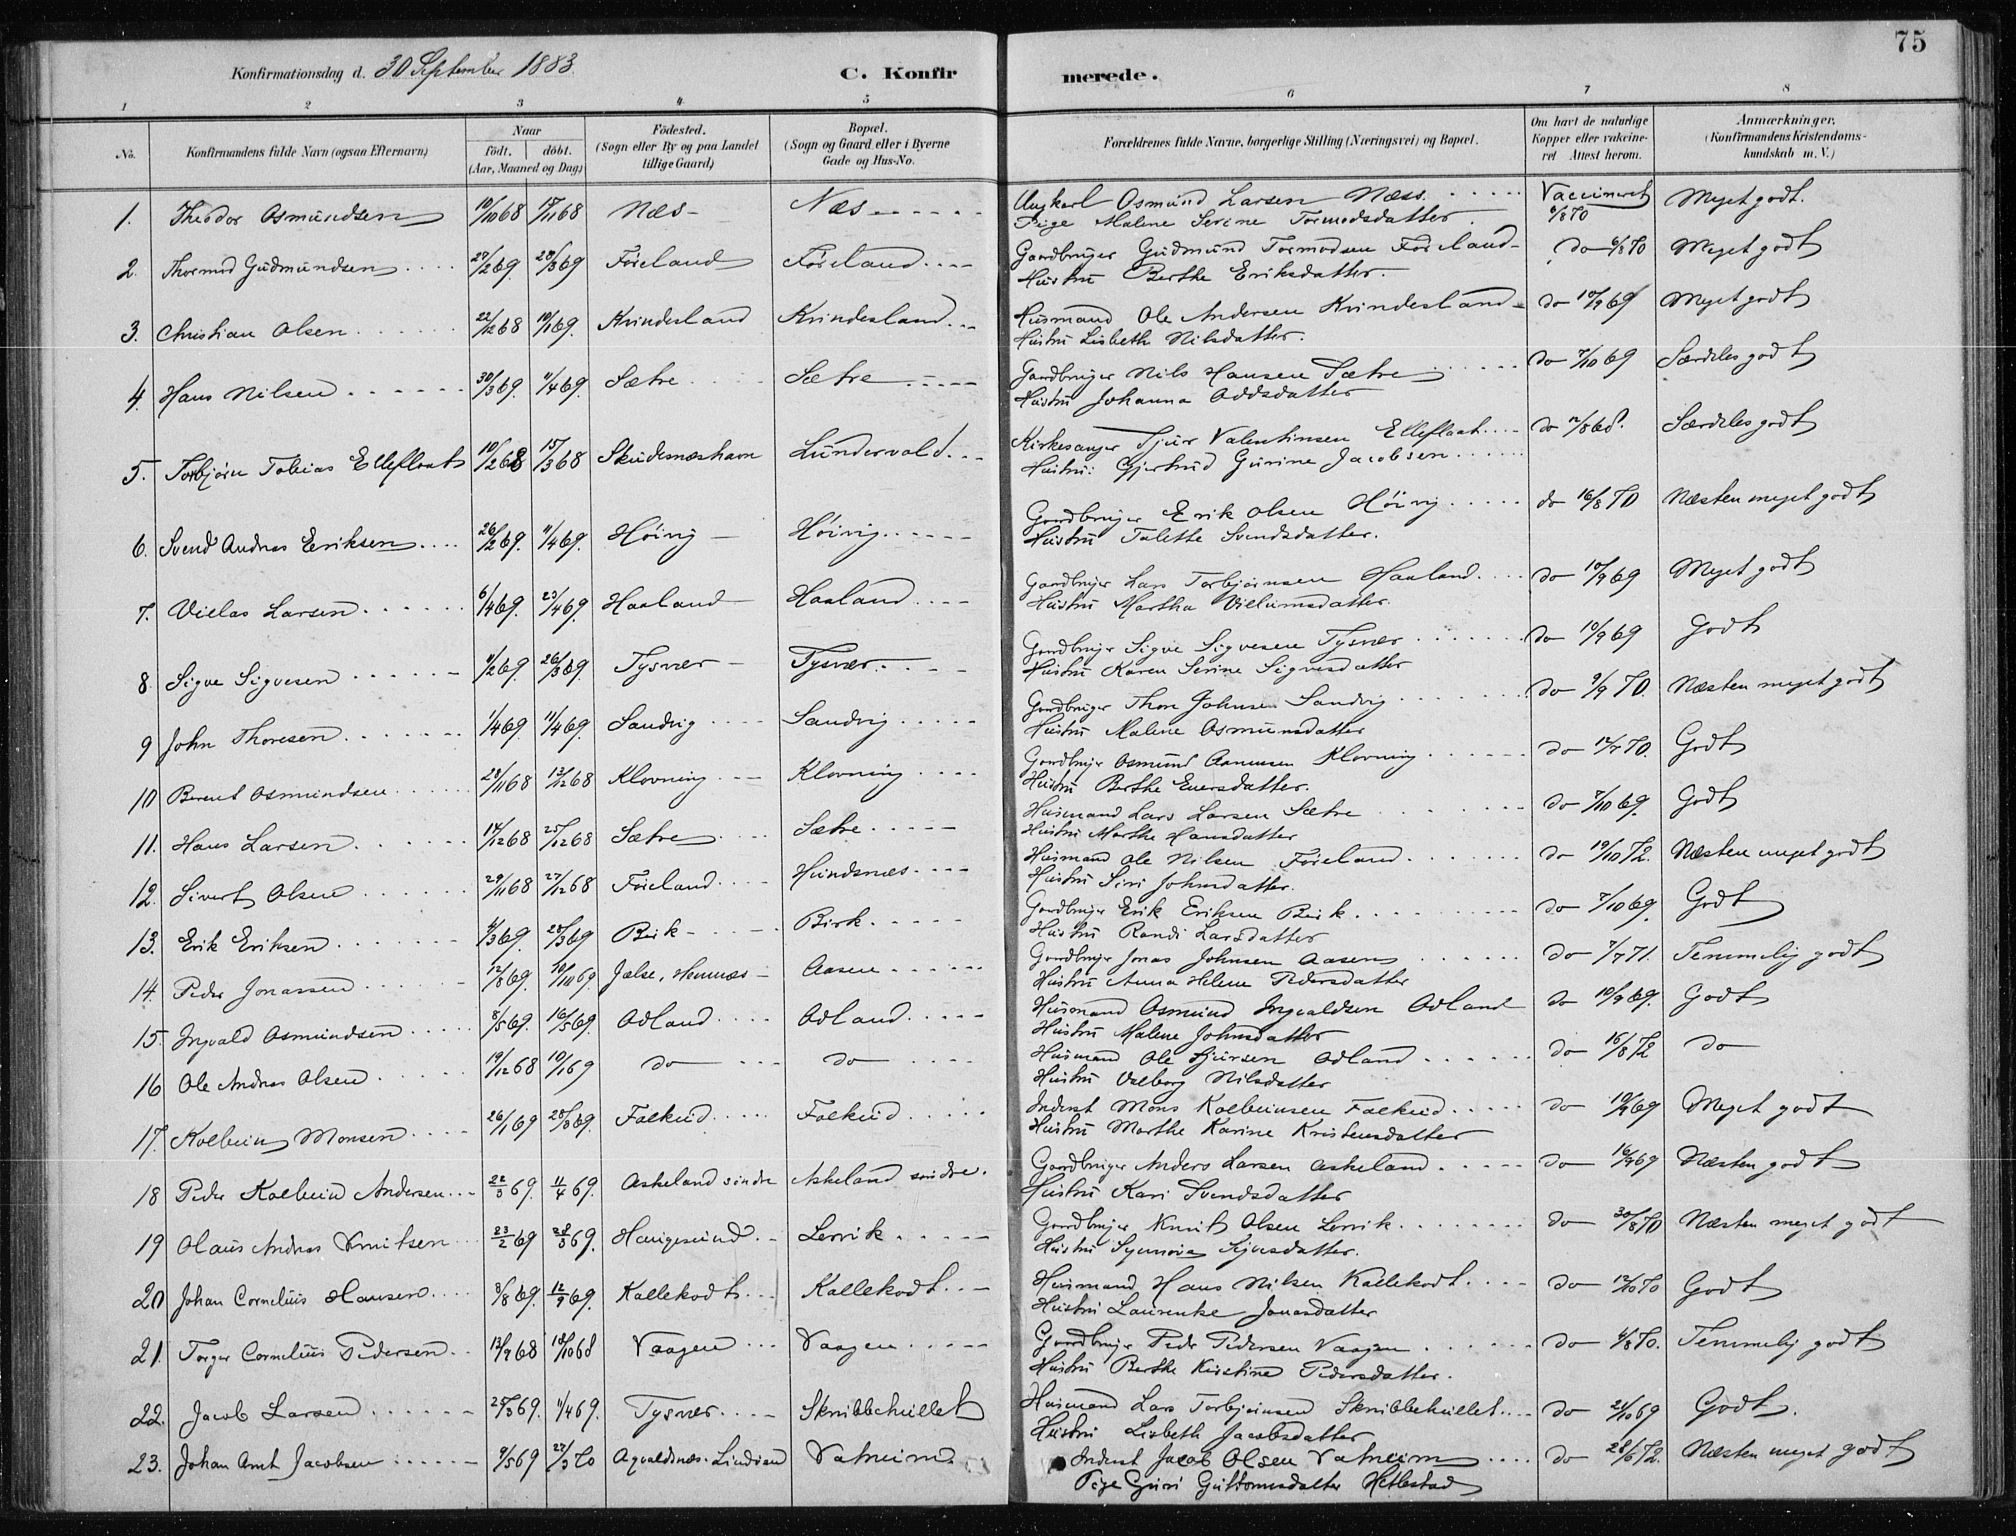 75
Konfirmationsdag d. 30 September 1883.
C. Konfirmerede.
1 2 3 4 5 6 7 8
No. Konfirmandens fulde Navn (ogsaa Efternavn) Naar födt. döbt. (Aar, Maaned og Dag) Födested. (Sogn eller By og paa Landet tillige Gaard) Bopæl. (Sogn og Gaard eller i Byerne Gade og Hus-No. Forældrenes fulde Navne, borgerlige Stilling (Næringsvei) og Bopæl. Om havt de naturlige Kopper eller vakcineret Attest herom. Anmærkninger. (Konfirmandens Kristendomskundskab m. V.)
1. Theodor Osmundsen 10/10 68 Næs Næs Ungkarl Osmund Larsen Næss Vaccineret 6/8 70 Meget godt.
Pige Malene Serine Tormodsdatter
2. Thormod Gudmundsen 27/2 69 28/3 69 Föreland Föreland Gaardbruger Gudmund Tormodsen Föreland do 6/8 70 Meget godt
Hustru Berthe Eriksdatter.
3. Christian Olsen 22/12 68 10/1 69. Kvindesland Kvindesland Husmand Ole Andersen Kvindesland do 10/9 69 Meget godt
Hustru Lisbeth Nilsdatter.
4. Hans Nilsen 30/3 69. 11/4 69. Sætre Sætre Gaardbruger Nils Hansen Sætre do 7/10 69 Særdeles godt
Hustru Johanna Oddsdatter
5. Torbjörn Tobias Elleflaat 10/2 68 15/3 68 Skudesnæshavn Lundervold Kirkesanger Sjur Valentinsen Elleflaat do Særdeles godt
Hustru: Gjertrud Gurine Jacobsen
6. Svend Andreas Eriksen 26/2 69. 11/4 69. Höivig Höivig Gaardbruger Erik Olsen Höivig do 16/8 70 Næsten meget godt
Hustru Talette Svendsdatter.
7. Vielas Larsen 6/4 69. 23/4 69. Haaland Haaland Gaardbruger Lars Torbjörnsen Haaland do 10/9 69 Meget godt
Hustru Martha Vielumsdatter.
8. Sigve Sigvesen 26/3 69. Tysvær Tysvær Gaardbruger Sigve Sigvesen Tysvær do 10/9 69 Godt
Hustru Karen Serine Sigvesdatter
9 John Thoresen 1/4 69. 11/4 69. Sandvig Sandvig Gaardbruger Thore Johnsen Sandvig do 9/9 70. Næsten meget godt
Hustru Malene Osmundsdatter
10 Berent Osmundsen 28/11 68 13/12 68 Klovning Klovning Gaardbruger Osmund Klovning do Godt
Hustru Berthe
11. Hans Larsen 14/12 68 25/12 68 Sætre Sætre Husmand Lars Larsen Sætre do 7/10 69. Godt
Hustru Marthe Hansdatter
12. Sivert Olsen 29/11 68 27/12 68 Föreland Hundsnæs Husmand Ole Nilsen Föreland do 19/10 72. Næsten meget godt
Hustru Siri Johnsdatter.
13. Erik Eriksen 28/3 69 Birk Birk Gaardbruger Erik Eriksen Birk do 7/10 69. Godt
Hustru Randi Larsdatter
14. Peder Jonassen 12/8 69. 10/10 69 Jælse, Hemnæs Aasen Gaardbruger Jonas Johnsen Aasen do 7/7 71. Temmelig godt
Hustru Anna Helene Pedersdatter
15. Ingvald Osmundsen 8/5 69. 16/5 69. Odland Odland Husmand Osmund Ingvaldsen Odland do 10/9 69. Godt
Hustru Malene Johnsdatter
16 Ole Andreas Olsen 19/12 68 10/1 69 do do Husmand Ole Sjursen Odland do 16/8 72 do
Hustru Valborg Nilsdatter
17. Kolbein Monsen 26/1 69 28/3 69. Falkeid Falkeid Inderst Mons Kolbeinsen Falkeid do 10/9 69 Meget godt
Hustru Marthe Karine Kristensdatter
18 Peder Kolbein Andersen 22/3 69. 11/4 69. Askeland söndre Askeland söndre. Gaardbruger Anders Larsen Askeland do 16/9 69 Næsten godt
Hustru Kari Svendsdatter
19 Olaus Andreas Knutsen 23/2 69 28/3 69. Haugesund Lervik Gaardbruger Knut Olsen Lervik do 30/8 70 Næsten meget godt
Hustru Synnöva
20 Johan Cornelius Hansen 3/8 69. 12/9 69. Kallekodt Kallekodt Husmand Hans Nilsen Kallekodt do 12/10 70 Godt
Hustru Laurentse Jonasdatter
21. Torger Cornelius Pedersen 13/9 68 18/10 68 Vaagen Vaagen Gaardbruger Peder Pedersen Vaagen do 4/8 70. Temmelig godt
Hustru Berthe Kirstine Pedersdatter.
22. Jacob Larsen 25/3 69. 11/4 69. Tysvær Skribbehullet Husmand Lars Torbjörnsen Skribbehullet do 21/10 69 Godt.
Hustru Lisbeth Jacobsdatter
23. Johan Arnt Jacobsen 9/5 69 Avaldsnes. Vatneim Inderst Jacob Olsen Vatneim do 28/6 72. Næsten meget godt
Pige Guri Guttormsdatter Hetlestad